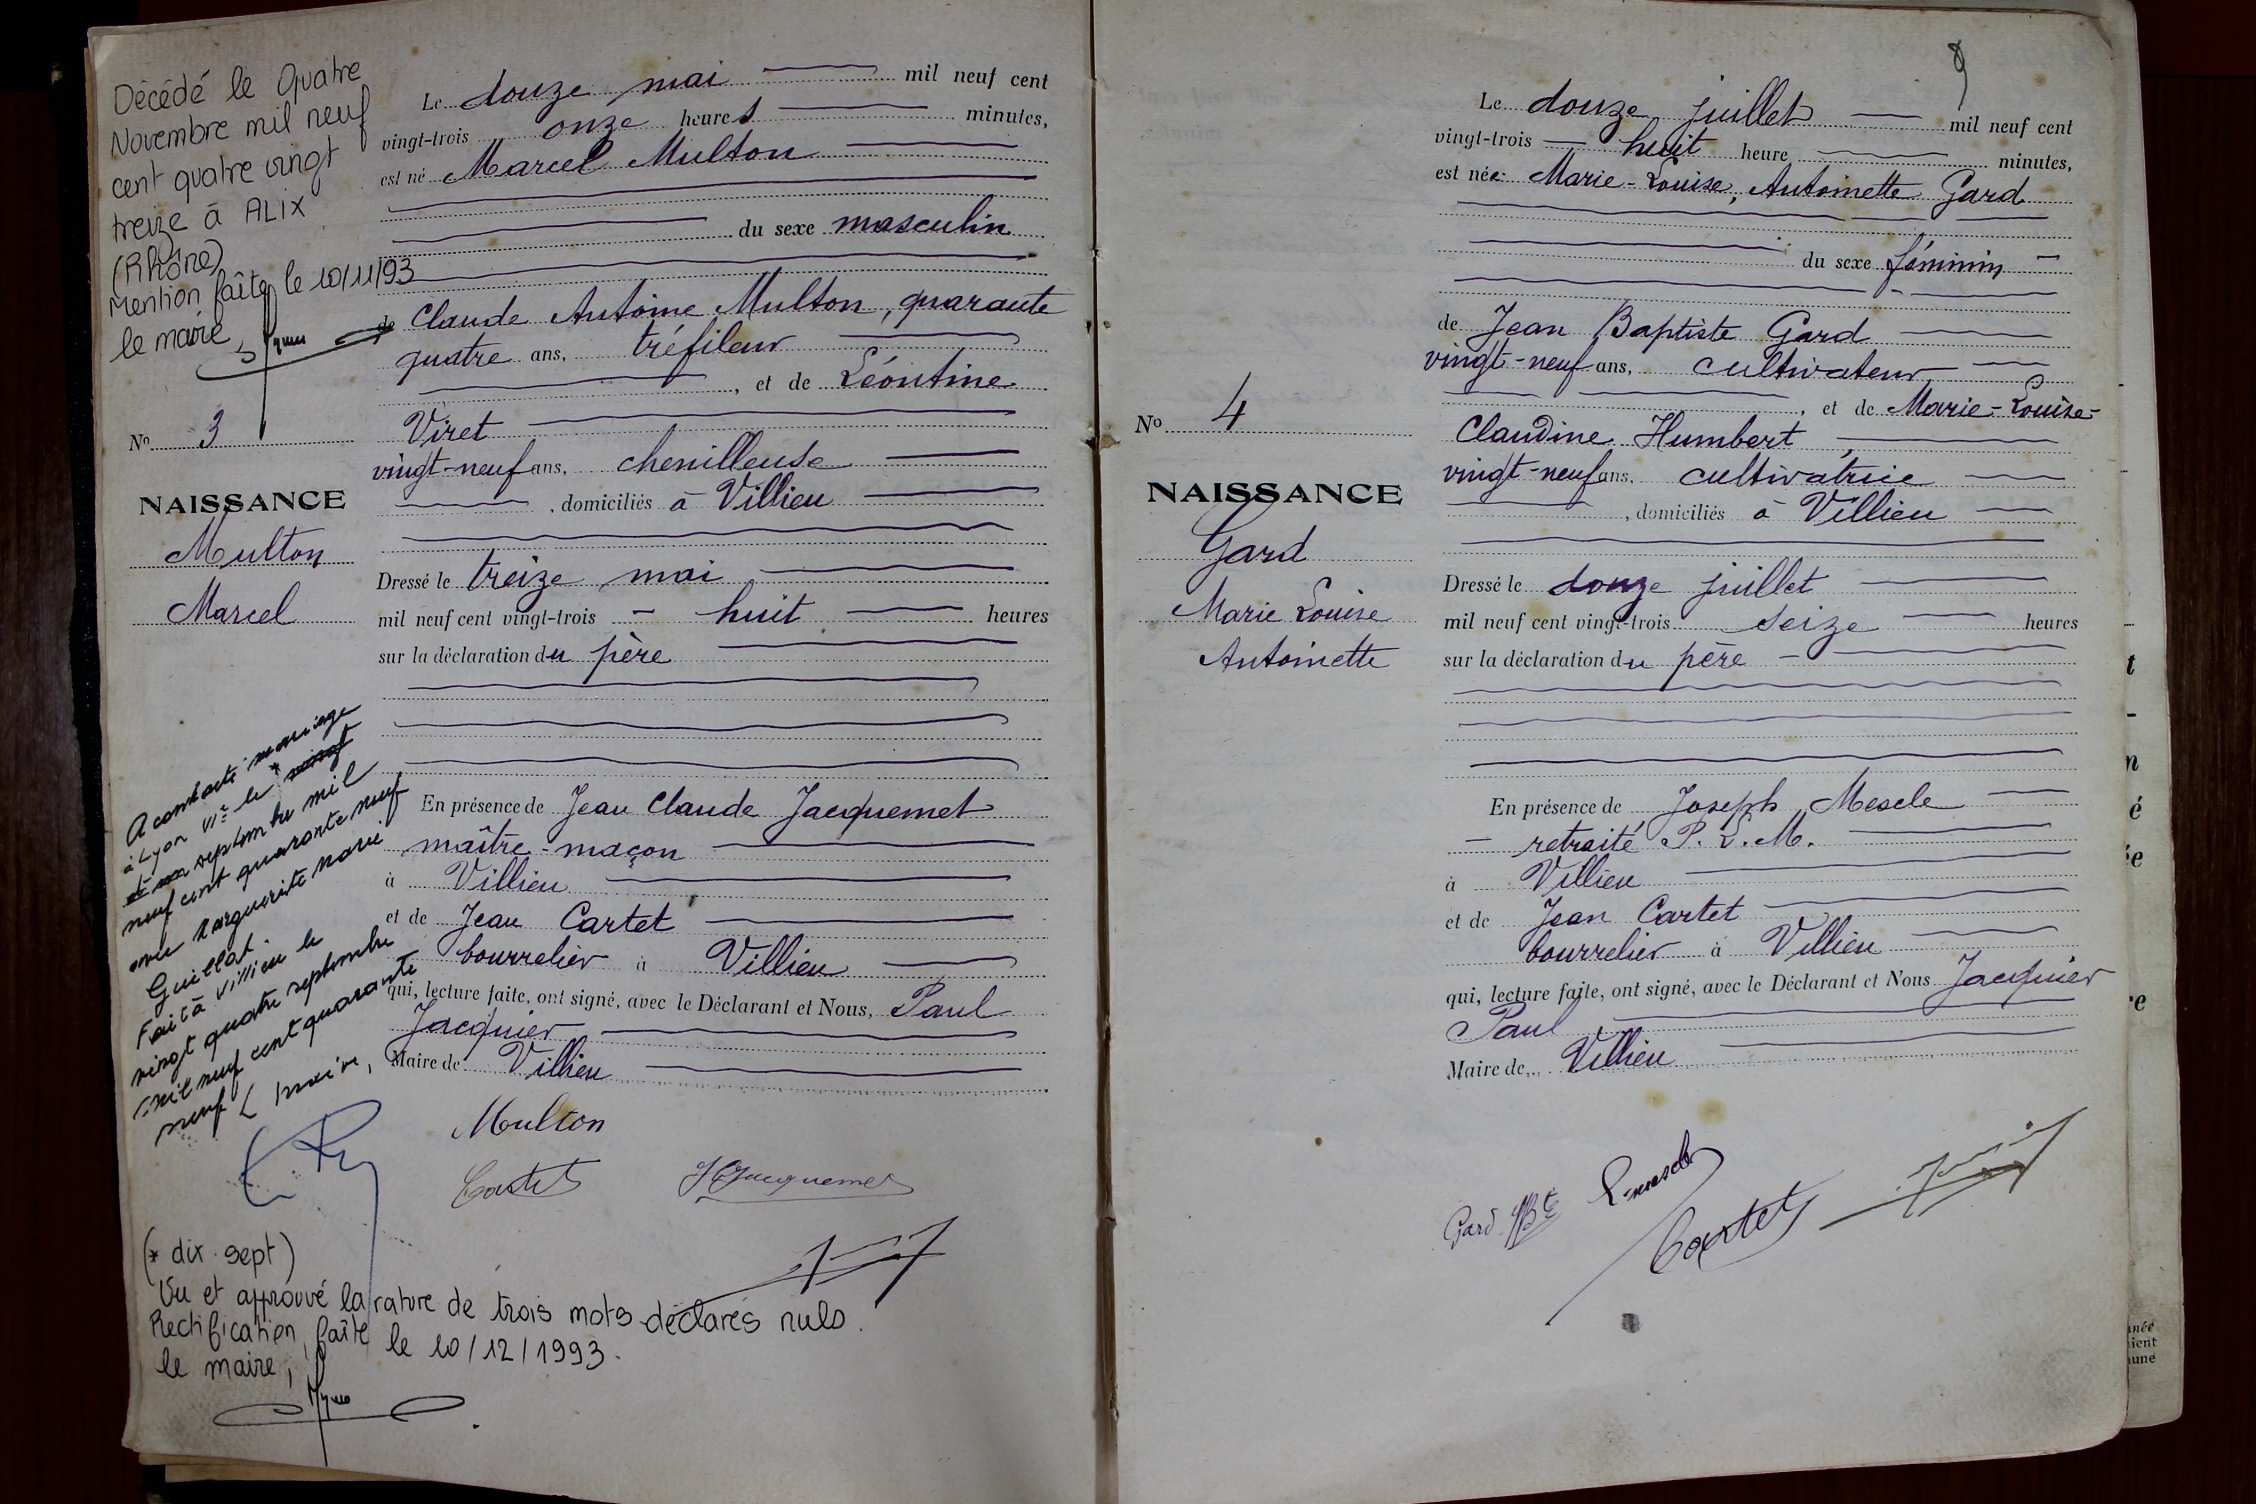 Décédé le Quatre
Novembre mil neuf
cent quatre vingt
treize à ALIX
(Rhône)
Mention faîte le 10/11/93
le maire,
No 3
NAISSANCE
Multon
Marcel
A contracté mariage
à Lyon VIe le * vingt
septembre mil
neuf cent quarante neuf
avec Marguerite Marie
Guillat.
Fait à Villieu le
vingt quatre septembre
mil neuf cent quarante
neuf Le maire,
Le douze mai mil neuf cent
vingt-trois onze heures minutes,
est né Marcel Multon
du sexe masculin
de Claude Antoine Multon, quarante
quatre ans, tréfileur
, et de Léontine
Viret
vingt-neuf ans, chenilleuse
, domiciliés à Villieu
Dressé le treize mai
mil neuf cent vingt-trois - huit heures
sur la déclaration du père
En présence de Jean Claude Jacquemet
maître-maçon
à Villieu
et de Jean Cartet
bourrelier à Villieu
qui, lecture faite, ont signé, avec le Déclarant et Nous, Paul
Jacquier
Maire de Villieu
Multon
Cartet Jacquemet
(* dix sept)
Vu et approuvé la rature de trois mots déclarés nuls.
Rectification faîte le 10/12/1993.
le maire,
No 4
NAISSANCE
Gard
Marie Louise
Antoinette
Le douze juillet mil neuf cent
vingt-trois huit heure minutes,
est née Marie-Louise, Antoinette Gard
du sexe féminin
de Jean Baptiste Gard
vingt-neuf ans, cultivateur
, et de Marie-Louise-
Claudine Humbert
vingt-neuf ans, cultivatrice
, domiciliés à Villieu
Dressé le douze juillet
mil neuf cent vingt-trois seize heures
sur la déclaration du père
En présence de Joseph Mescle
retraité P.L.M.
à Villieu
et de Jean Cartet
bourrelier à Villieu
qui, lecture faite, ont signé, avec le Déclarant et Nous Jacquier
Paul
Maire de Villieu
Gard JBte
Cartet